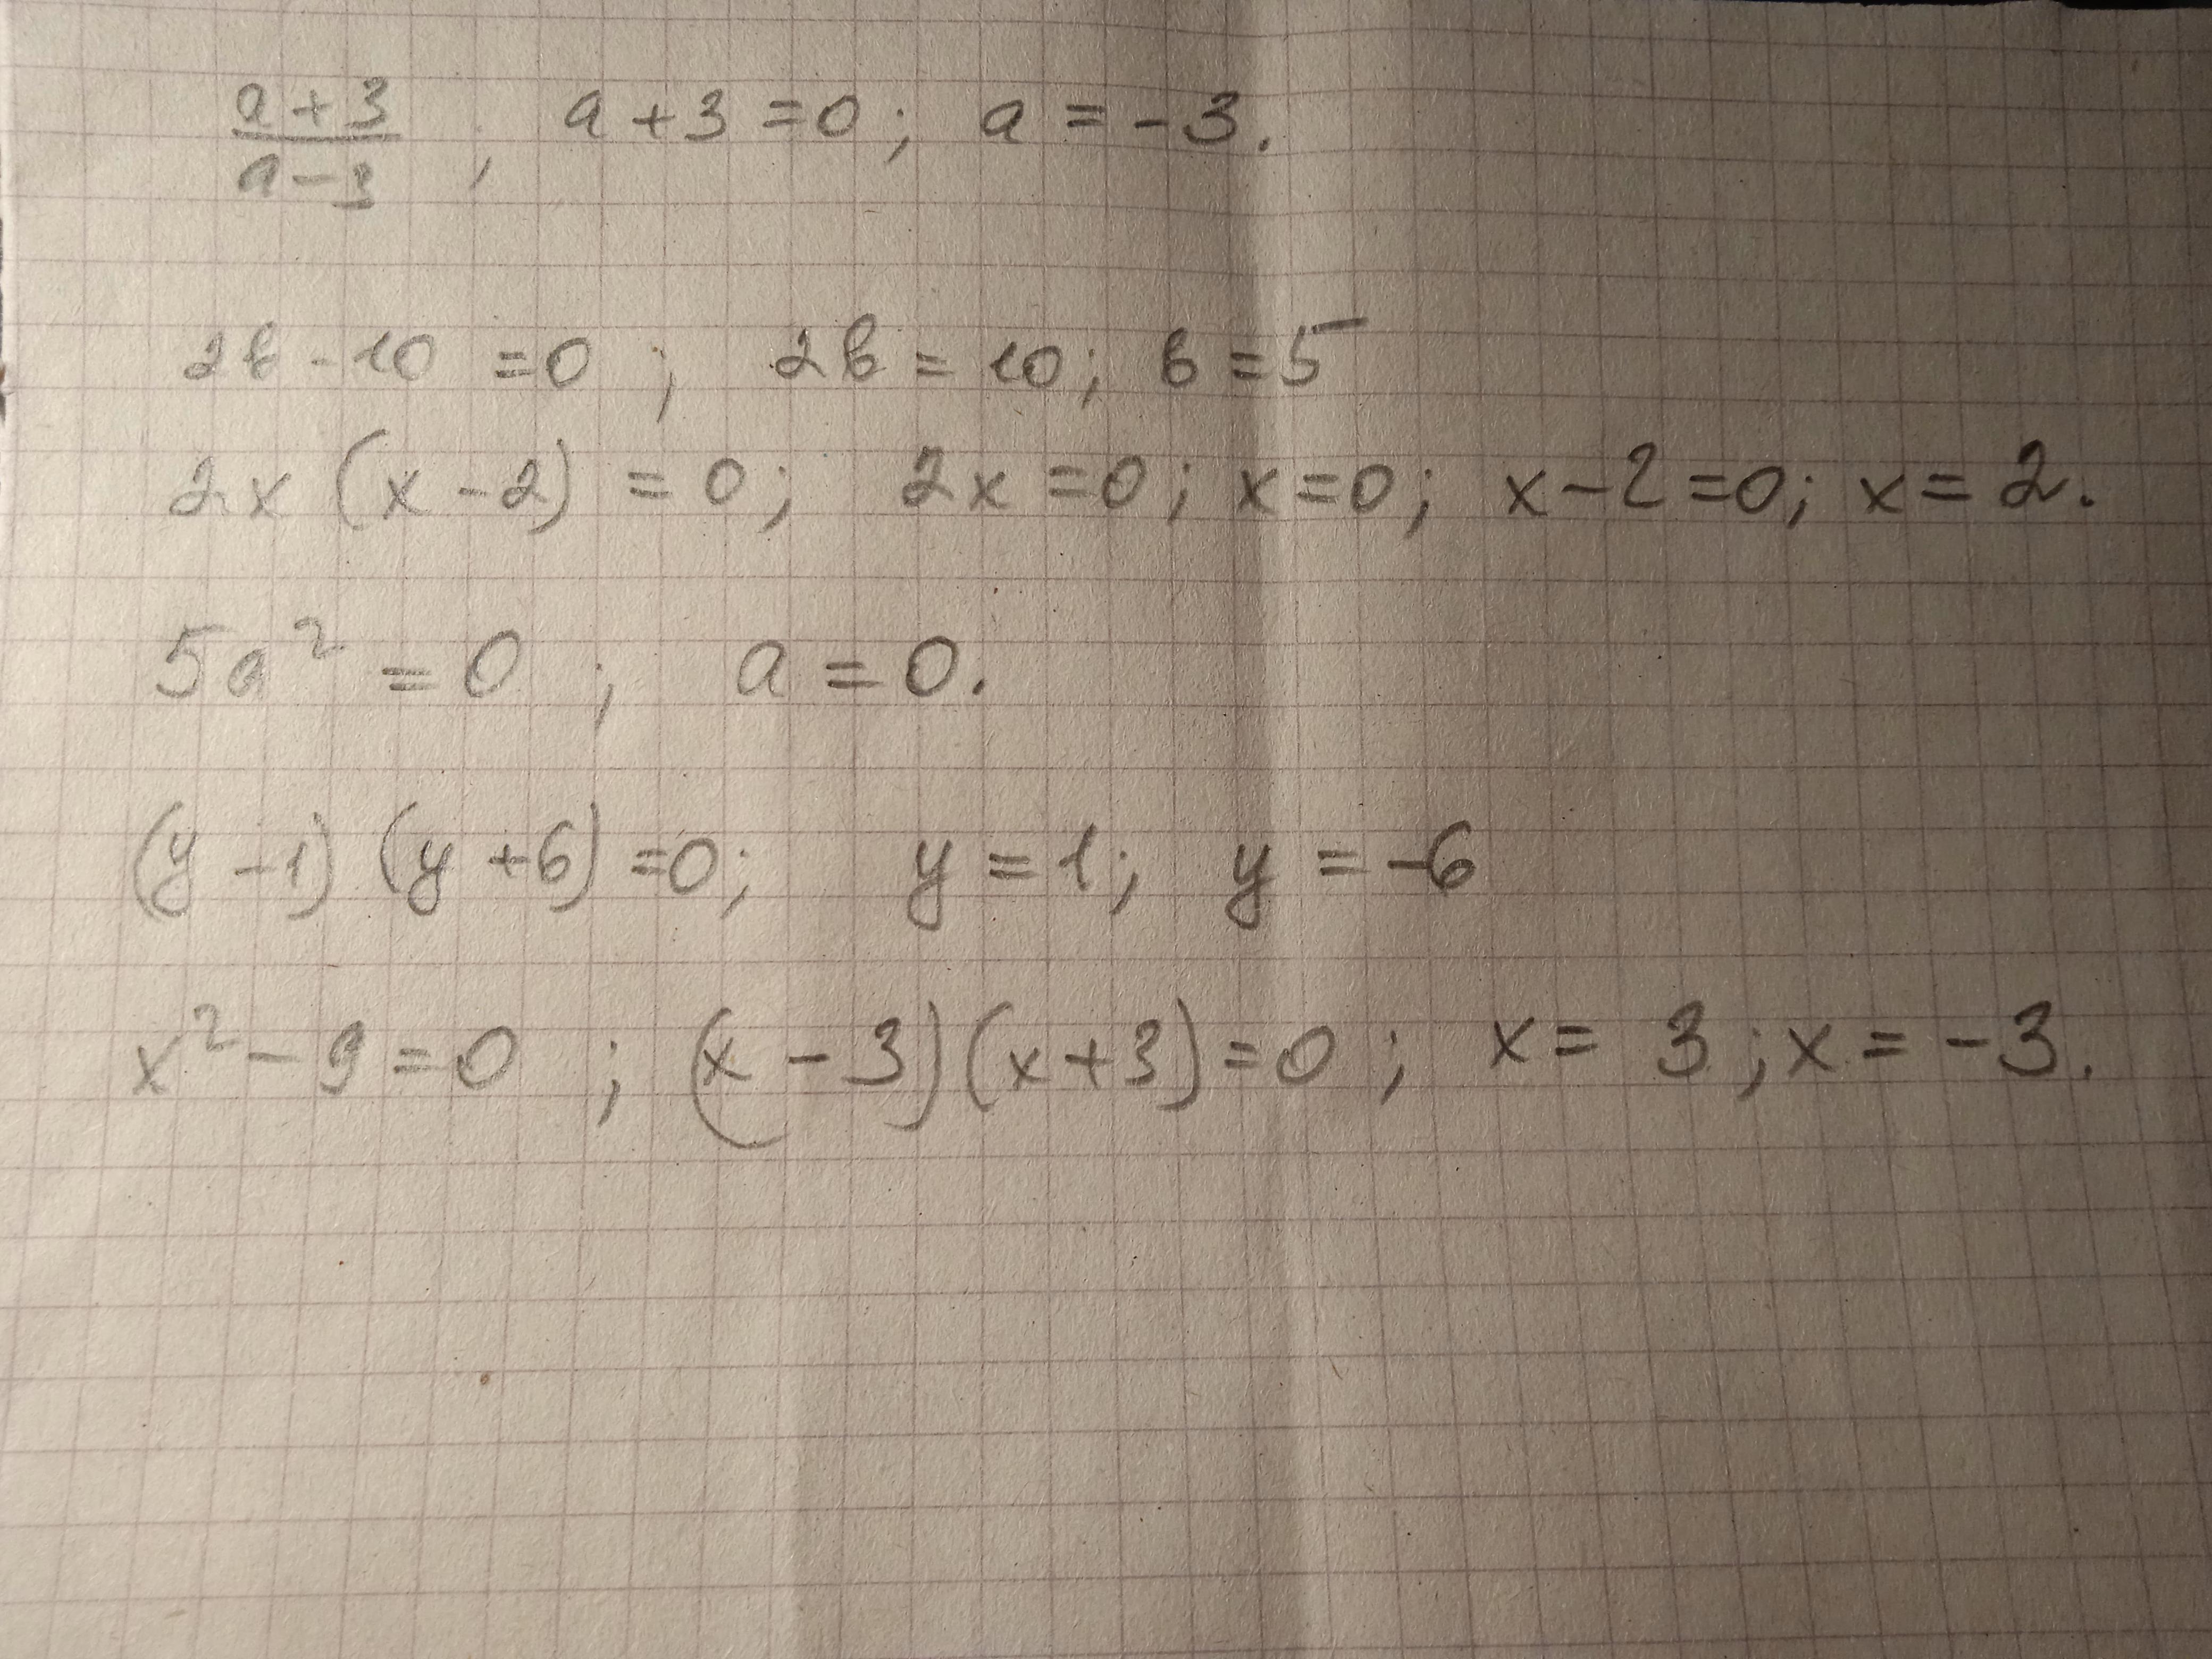 a+3/a-3 ; a+3=0; a=-3.
2b-10=0; 2b=10; b=5
2x(x-2)=0; 2x=0; x=0; x-2=0; x=2.
5a²=0; a=0.
(y-1)(y+6)=0; y=1; y=-6
x²-9=0; (x-3)(x+3)=0; x=3; x=-3.